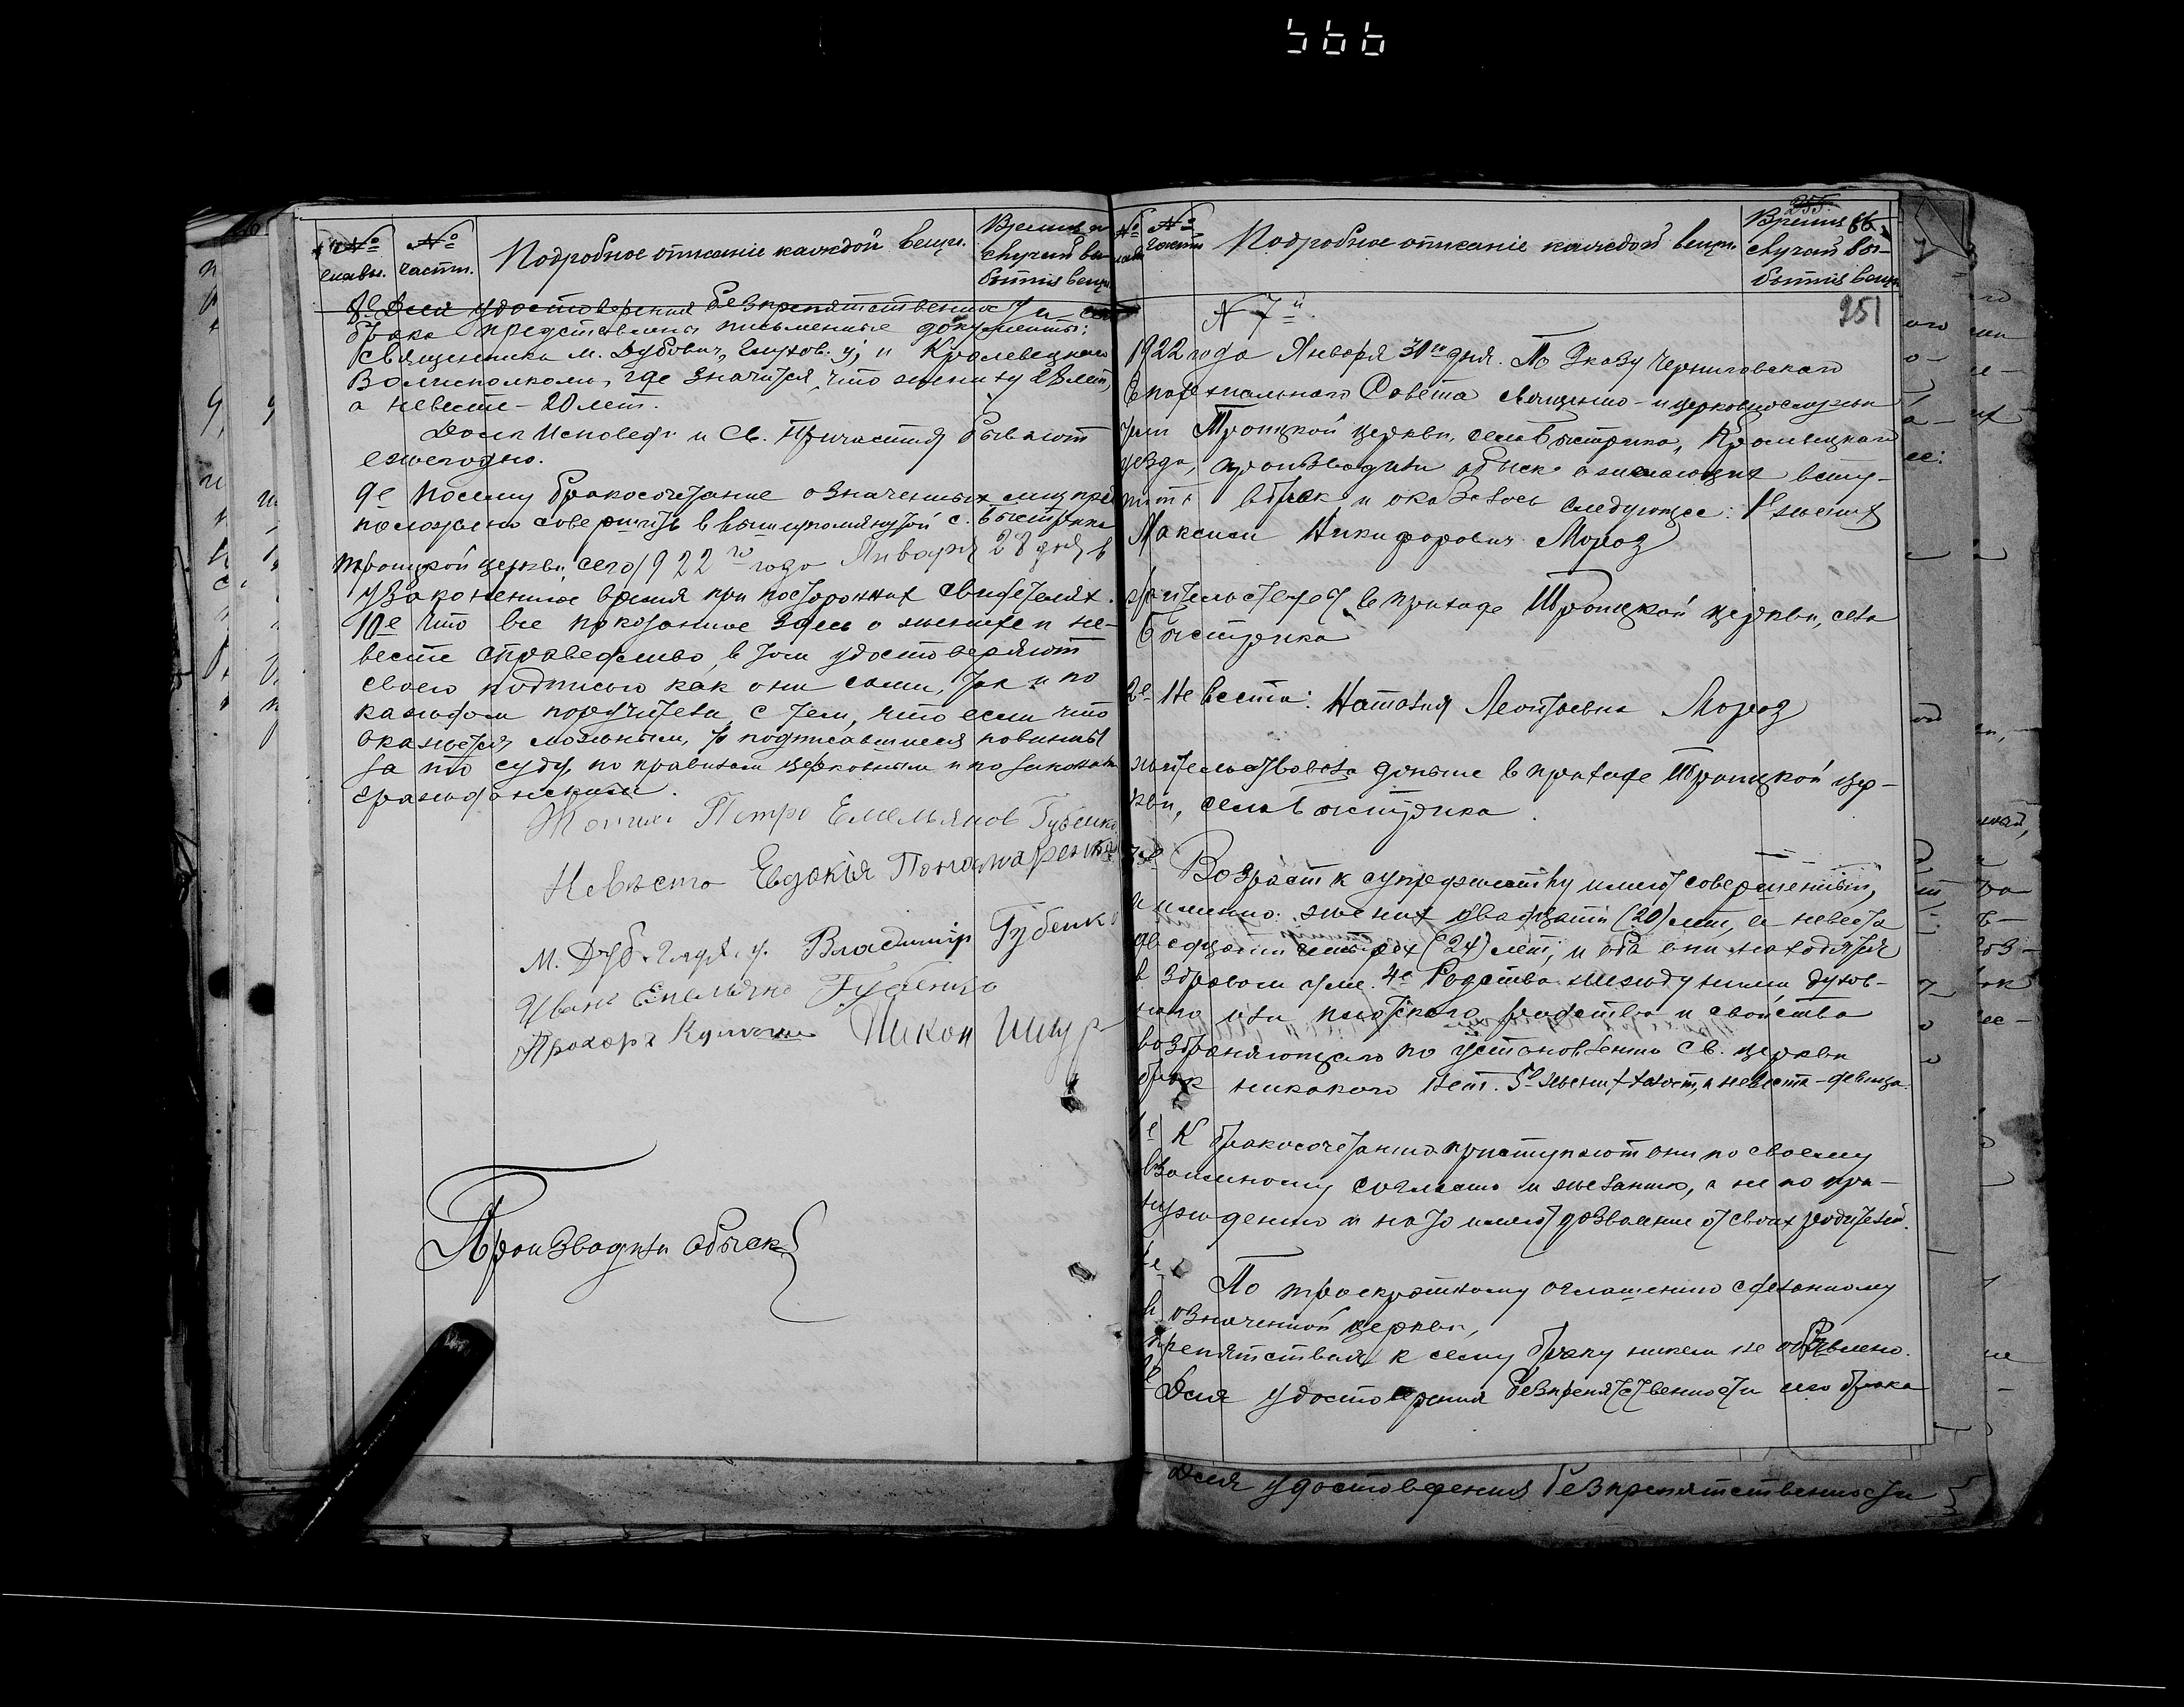 566
№ главы.
№ части.
Подробное описание каждой вещи.
Время и случай выбытия вещи.
8е Для удостоверения безпрепятственности сего
брака представлены письменные документы:
священника м. Дубович, Глухов. у; и Кролевецкого
Волисполкома, где значится, что жениху 28 лет,
а невесте – 20 лет.
Долг Исповеди и Св. Причастия бывают
ежегодно.
9е Посему бракосочетание означенных лиц пред
положено совершить в вышеупомянутой с. Быстрика
Троицкой церкви, сего 1922го года Января 28 дня в
узаконенное время при посторонних свидетелях.
10е Что все показанное здесь о женихе и не-
весте справедливо, в том удостоверяют
своею подписью как они сами, так и по
каждом поручители, с тем, что если что
окажется ложным, то подписавшиеся повинны
за то суду, по правилам церковным и по законам
гражданским.
Жених Петро Емельянов Губенко
Невеста Евдокія Пономаренко
М. Дуб. Глух. у. Владимір Губенко
Иванъ Емельянов Губенко
Прохоръ Никон Шкур
Производили обыск
№ части
Подробное описаніе каждой вещи.
255.
Время и случай вы-
бытия вещи
251
№ 7й.
1922 года Января 31го дня. По Указу Черниговского
Епархиального Совета священно-и церковнослужи
тели Троицкой церкви, села Быстрика, Кролевецкаго
уезда, производили обыск о желающих всту-
пить в брак и оказалось следующее: 1е жених
Максим Никифорович Мороз
жительствует в приходе Троицкой церкви, села
Быстрика
2е Невеста: Наталия Леонтьевна Мороз
жительствовала доныне в приходе Троицкой цер-
кви, села Быстрика.
3е Возраст к супружеству имеют совершенный,
а именно: жених двадцати (20) лет, а невеста
двадцати четырех (24) лет; и оба они находятся
в здравом уме. 4е Родства между ними духов-
ного или плотского родства и свойства
возбраняющаго по установлению Св. церкви
брак никакого нет. 5е Жених холост, а невеста – девица.
е К бракосочетанию приступают они по своему
взаимному согласию и желанию, а не по при-
нуждению и на то имеют дозволение от своих родителей.
е По троекратному оглашению сделанному
в означенной церкви,
препятствия к сему браку никем не объявлено.
е Для удостоверения безпрепятственности сего брака
Для удостоверения безпрепятственности